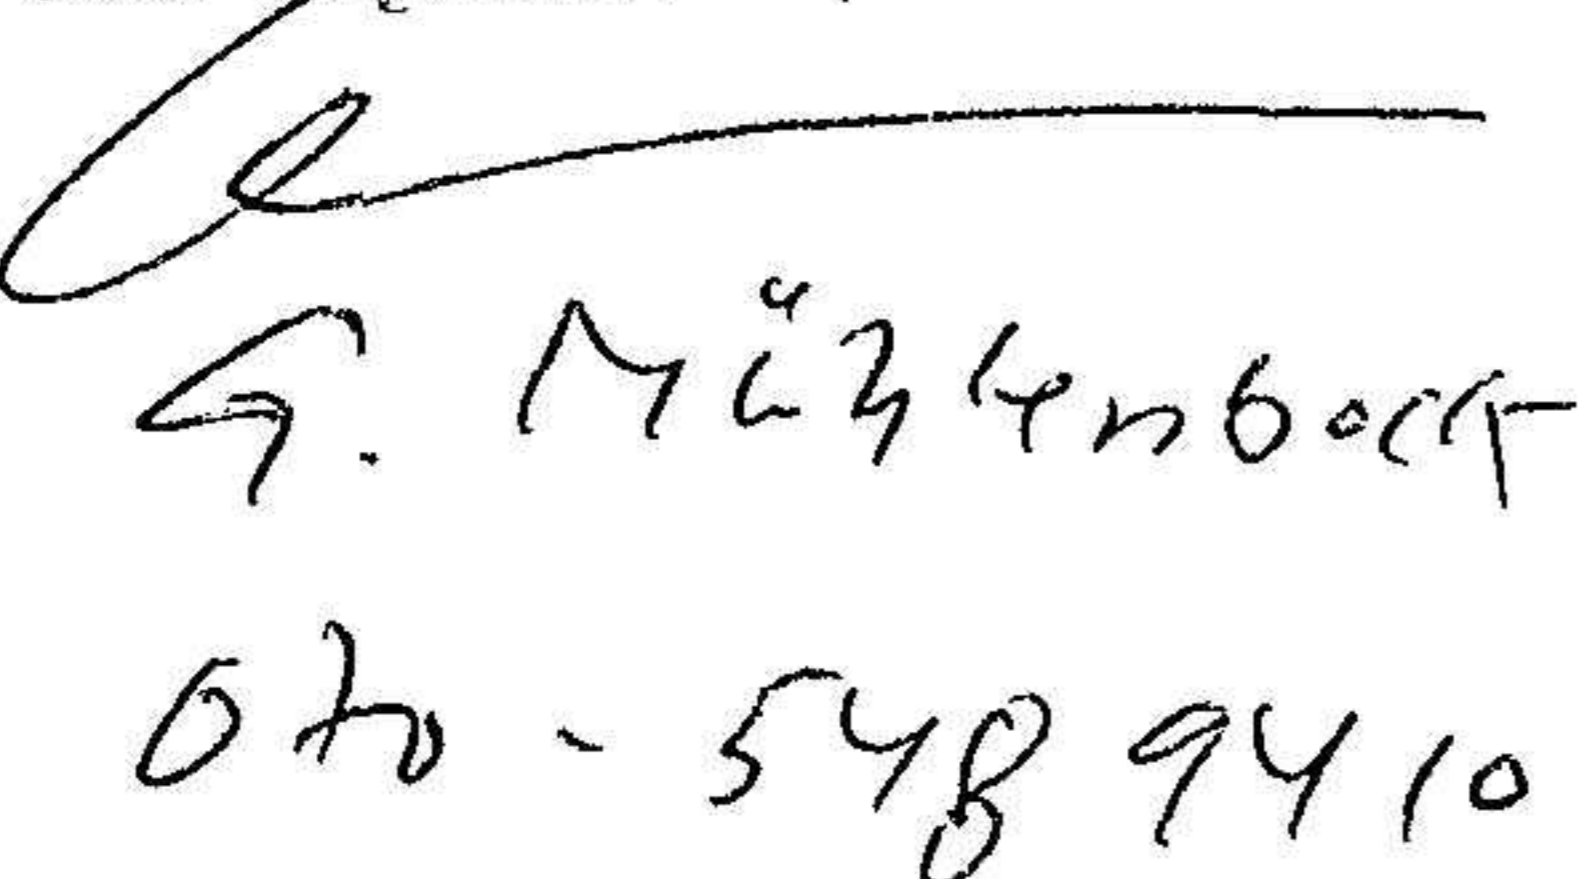 G. Mühlenbock
070 - 548 94 10